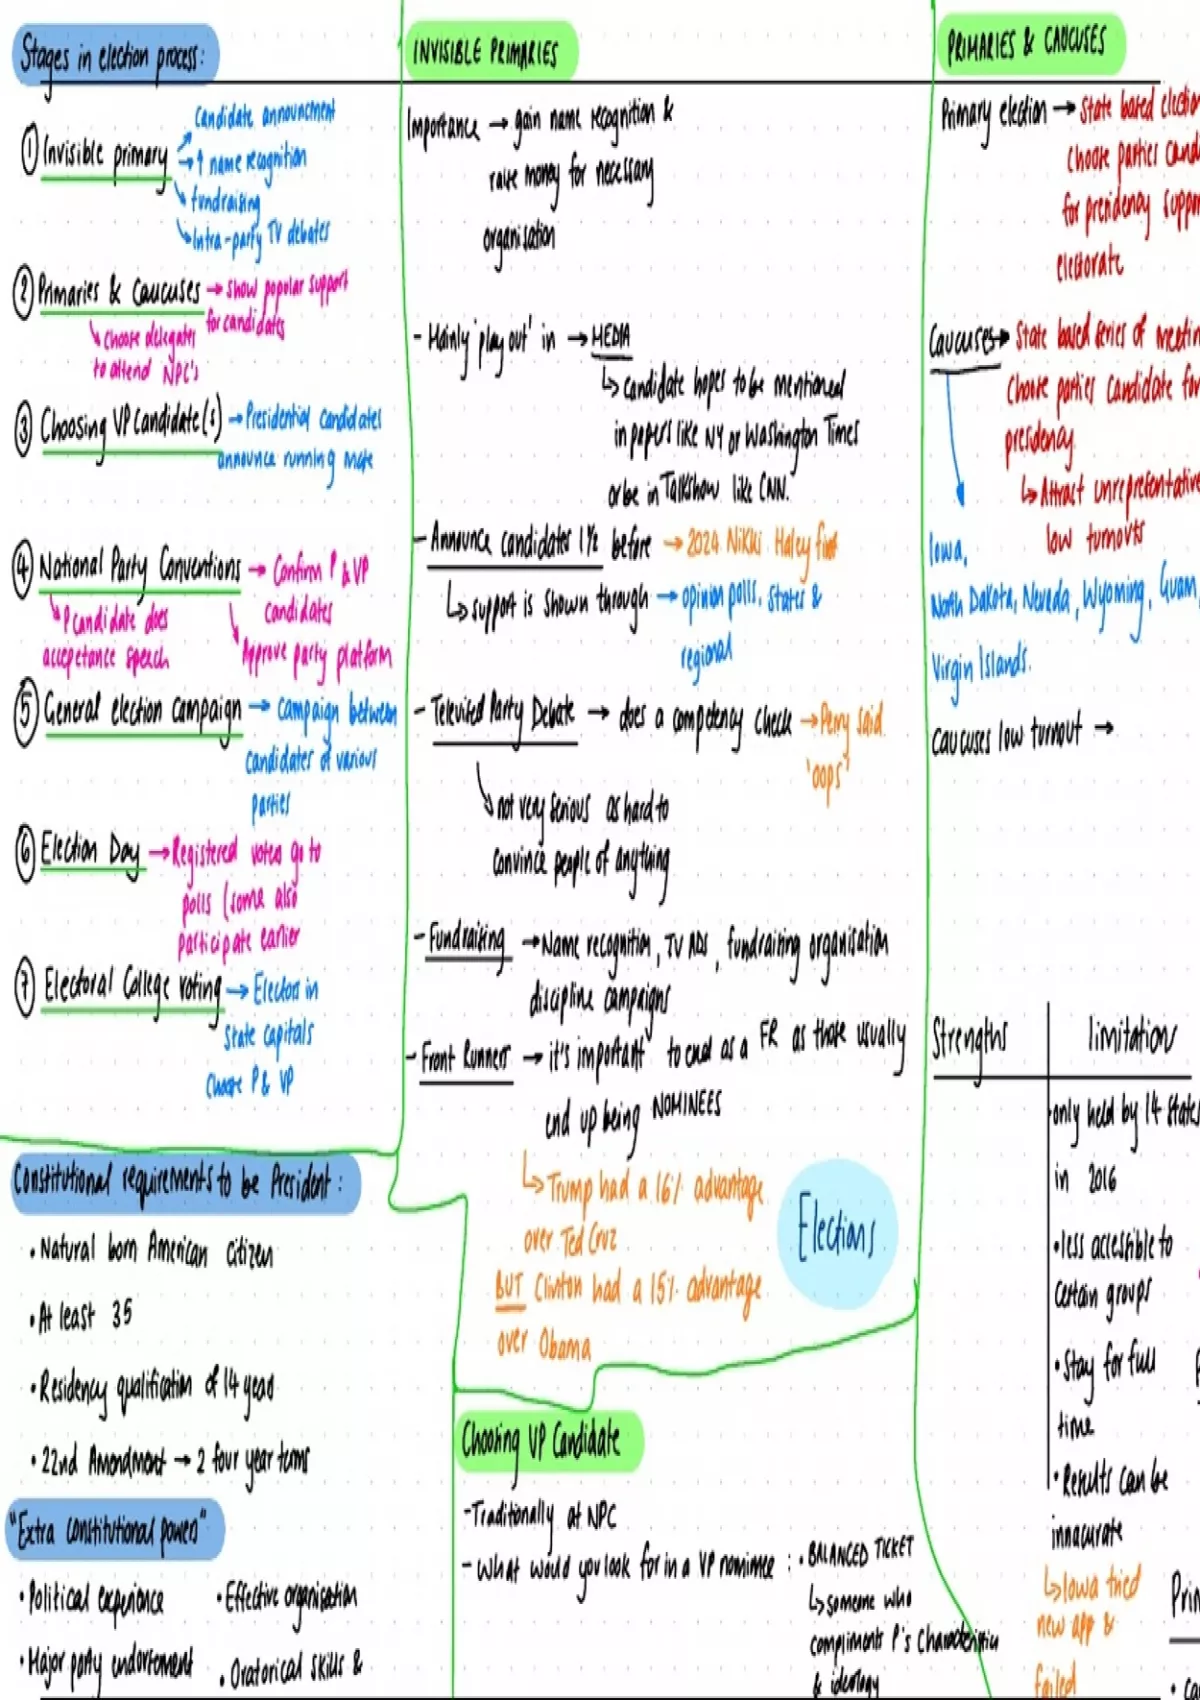 Stages in election process:
① Invisible primary
Candidate announcment
→ ↑ name recognition
fundraising
Intra-party TV debates
② Primaries & Caucuses → show popular support
for candidates
↳ choose delegates
to attend NPC's
③ Choosing VP candidate(s) → Presidential candidates
announce running mate
④ National Party Conventions → Confirm P & VP
candidates
↳ P candidate does
acceptance speech
Approve party platform
⑤ General election campaign → campaign between
candidates of various
parties
⑥ Election Day → Registered voters go to
polls (some also
participate earlier
⑦ Electoral College voting → Electors in
state capitals
choose P & VP
Constitutional requirements to be President:
• Natural born American citizen
• At least 35
• Residency qualification of 14 years
• 22nd Amendment → 2 four year terms
"Extra constitutional powers"
• Political experience
• Effective organisation
• Major party endorsement
• Oratorical skills &
INVISIBLE PRIMARIES
Importance → gain name recognition &
raise money for necessary
organisation
- Mainly 'play out' in → MEDIA
↳ candidate hopes to be mentioned
in papers like NY or Washington Times
or be in Talkshow like CNN.
- Announce candidates 1½ before → 2024 Nikki Haley first
↳ support is shown through → opinion polls, states &
regional
- Televised Party Debate → does a competency check → Perry said
'oops'
↳ not very serious as hard to
convince people of anything
- Fundraising → Name recognition, TV ADS, fundraising organisation
discipline campaigns
- Front Runners → it's important to end as a FR as those usually
end up being NOMINEES
↳ Trump had a 16% advantage
over Ted Cruz
BUT Clinton had a 15% advantage
over Obama
Elections
Choosing VP Candidate
- Traditionally at NPC
- What would you look for in a VP nominee : • BALANCED TICKET
↳ someone who
compliments P's characteristics
& ideology
PRIMARIES & CAUCUSES
Primary election → State based election
choose parties
for presidency
electorate
Caucuses → State based series of
Choose parties candidate for
presidency
↳ Attract unrepresentative
low turnouts
Iowa,
North Dakota, Nevada, Wyoming, Guam,
Virgin Islands.
caucuses low turnout →
Strengths
limitation
• only held by 14 states
in 2016
• less accessible to
certain groups
• Stay for full
time
• Results can be
innacurate
↳ Iowa tried
new app &
failed